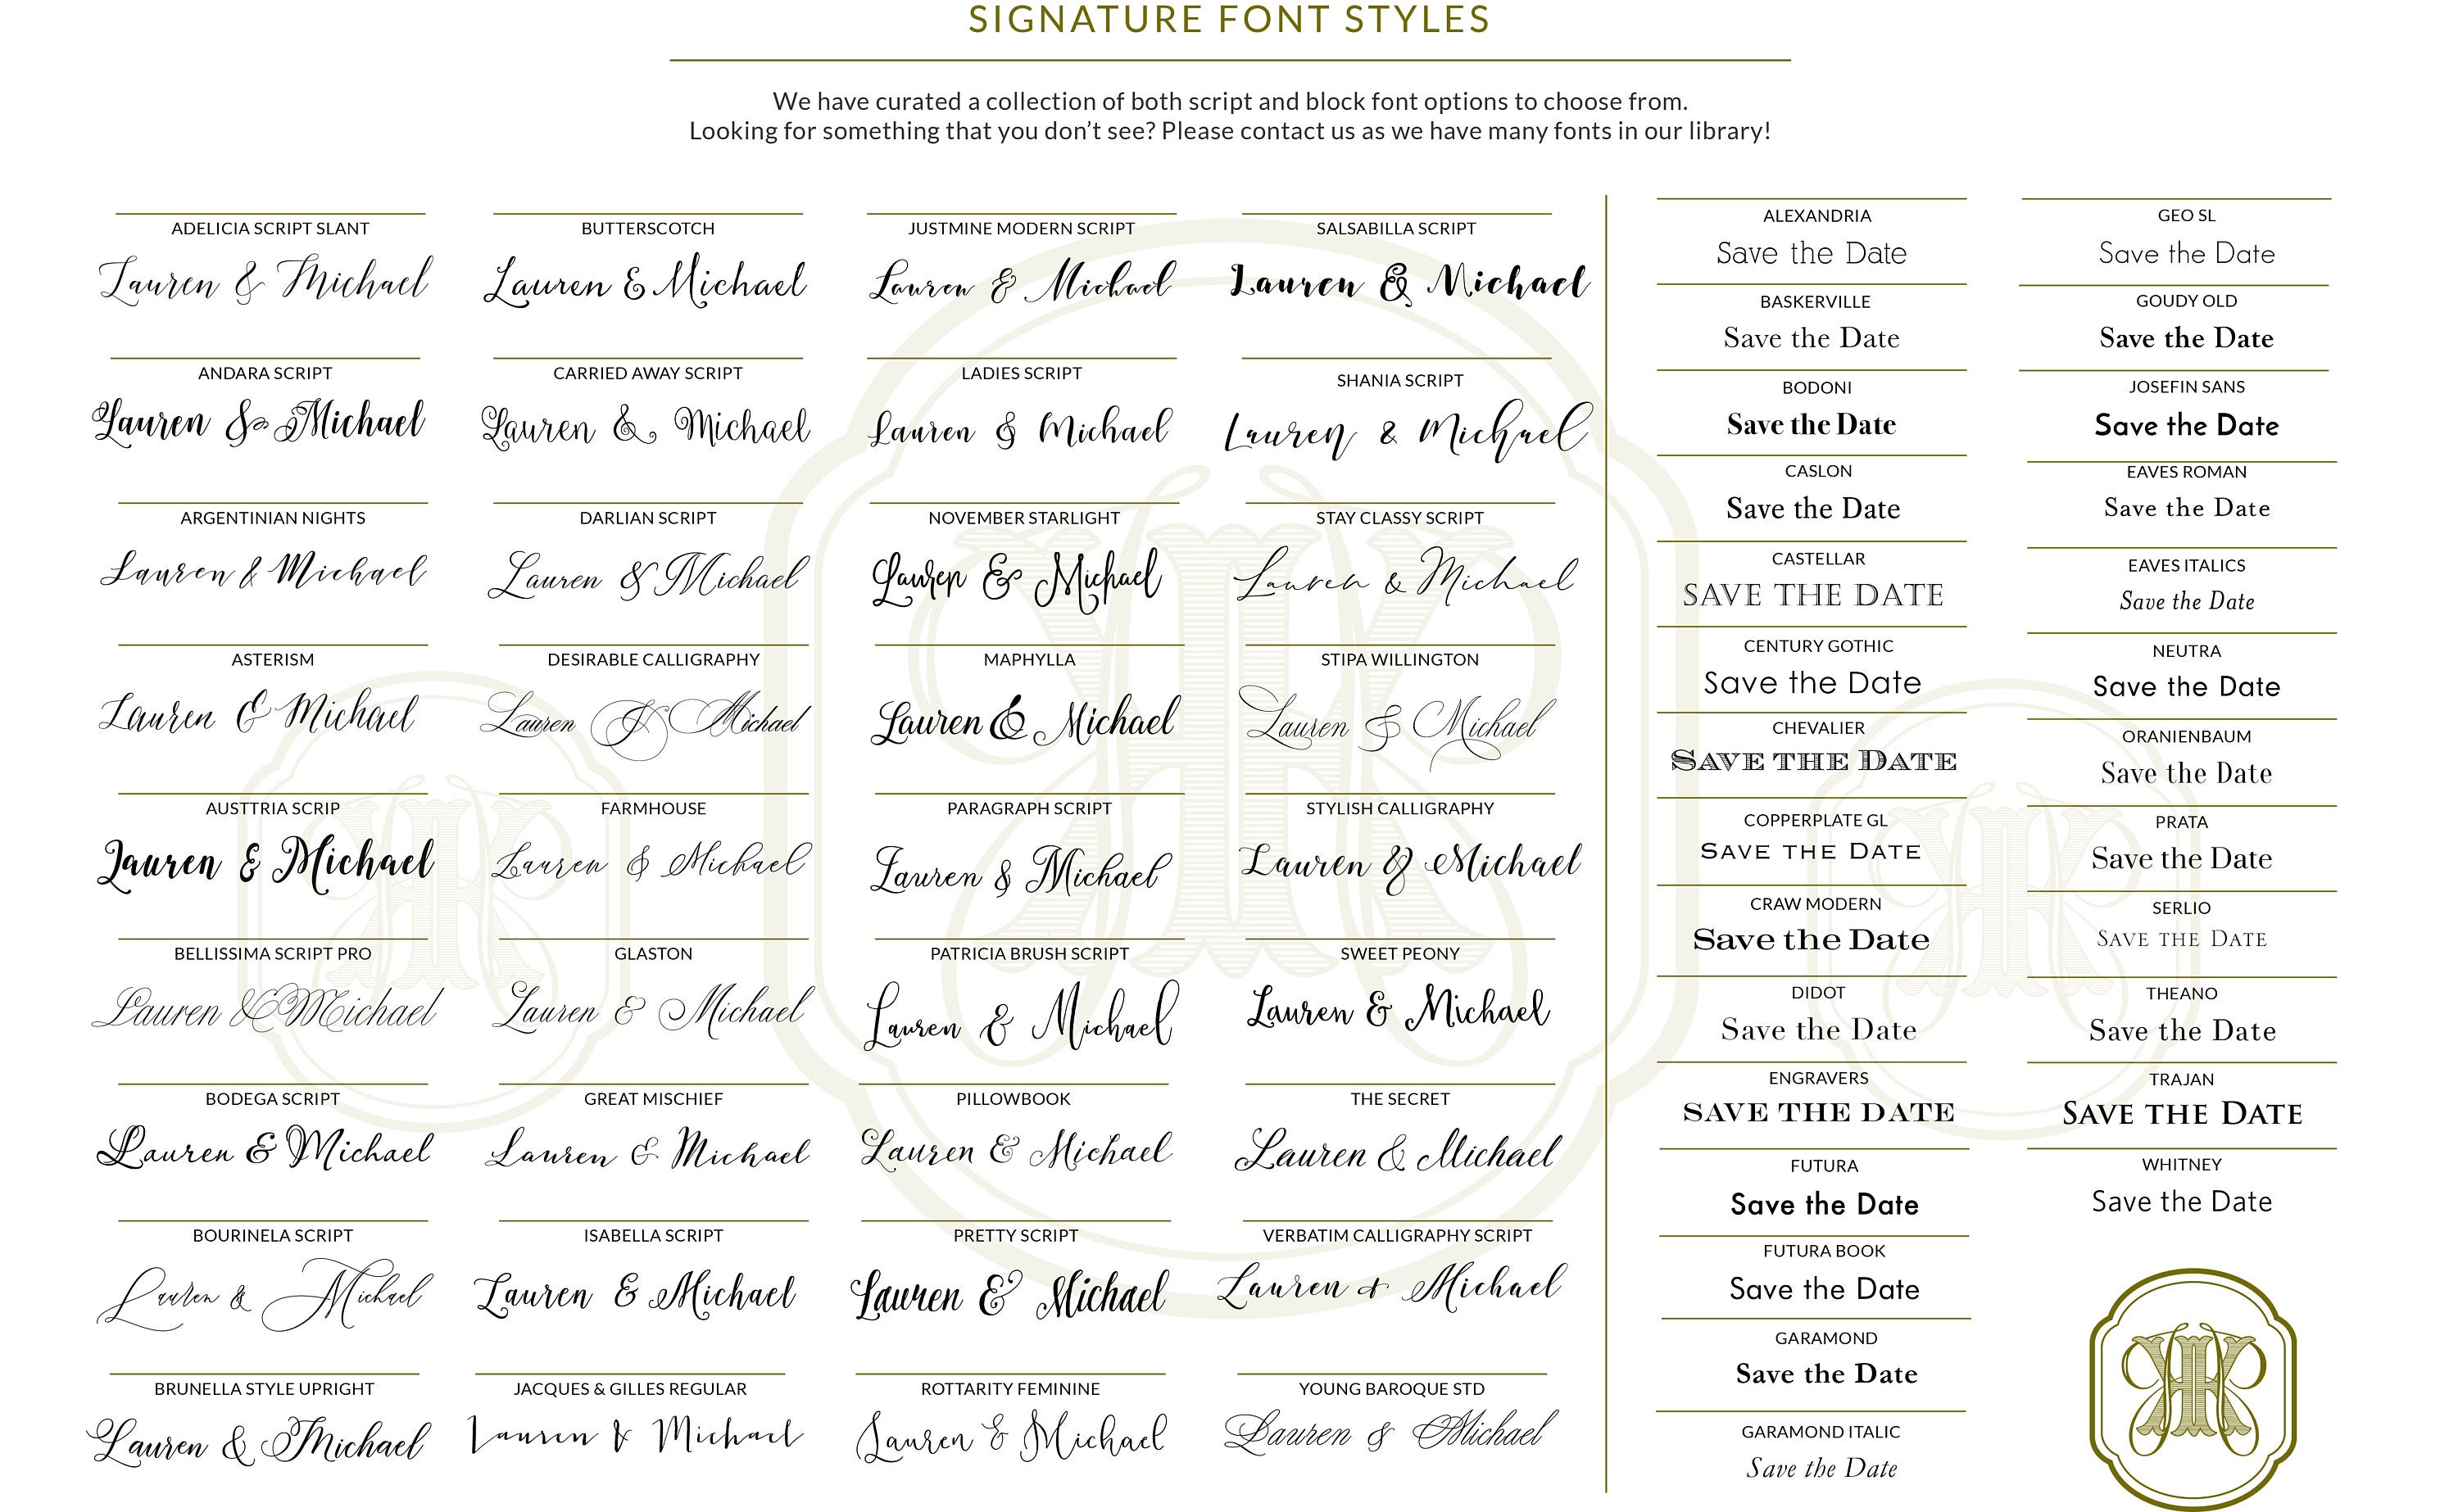 SIGNATURE FONT STYLES
We have curated a collection of both script and block font options to choose from.
Looking for something that you don't see? Please contact us as we have many fonts in our library!
ADELICIA SCRIPT SLANT
Lauren & Michael
ANDARA SCRIPT
Lauren & Michael
ARGENTINIAN NIGHTS
Lauren & Michael
ASTERISM
Lauren & Michael
AUSTTRIA SCRIP
Lauren & Michael
BELLISSIMA SCRIPT PRO
Lauren & Michael
BODEGA SCRIPT
Lauren & Michael
BOURINELA SCRIPT
Lauren & Michael
BRUNELLA STYLE UPRIGHT
Lauren & Michael
BUTTERSCOTCH
Lauren & Michael
CARRIED AWAY SCRIPT
Lauren & Michael
DARLIAN SCRIPT
Lauren & Michael
DESIRABLE CALLIGRAPHY
Lauren & Michael
FARMHOUSE
Lauren & Michael
GLASTON
Lauren & Michael
GREAT MISCHIEF
Lauren & Michael
ISABELLA SCRIPT
Lauren & Michael
JACQUES & GILLES REGULAR
Lauren & Michael
JUSTMINE MODERN SCRIPT
Lauren & Michael
LADIES SCRIPT
Lauren & Michael
NOVEMBER STARLIGHT
Lauren & Michael
MAPHYLLA
Lauren & Michael
PARAGRAPH SCRIPT
Lauren & Michael
PATRICIA BRUSH SCRIPT
Lauren & Michael
PILLOWBOOK
Lauren & Michael
PRETTY SCRIPT
Lauren & Michael
ROTTARITY FEMININE
Lauren & Michael
SALSABILLA SCRIPT
Lauren & Michael
SHANIA SCRIPT
Lauren & Michael
STAY CLASSY SCRIPT
Lauren & Michael
STIPA WILLINGTON
Lauren & Michael
STYLISH CALLIGRAPHY
Lauren & Michael
SWEET PEONY
Lauren & Michael
THE SECRET
Lauren & Michael
VERBATIM CALLIGRAPHY SCRIPT
Lauren & Michael
YOUNG BAROQUE STD
Lauren & Michael
ALEXANDRIA
Save the Date
BASKERVILLE
Save the Date
BODONI
Save the Date
CASLON
Save the Date
CASTELLAR
SAVE THE DATE
CENTURY GOTHIC
Save the Date
CHEVALIER
SAVE THE DATE
COPPERPLATE GL
SAVE THE DATE
CRAW MODERN
Save the Date
DIDOT
Save the Date
ENGRAVERS
SAVE THE DATE
FUTURA
Save the Date
FUTURA BOOK
Save the Date
GARAMOND
Save the Date
GARAMOND ITALIC
Save the Date
GEO SL
Save the Date
GOUDY OLD
Save the Date
JOSEFIN SANS
Save the Date
EAVES ROMAN
Save the Date
EAVES ITALICS
Save the Date
NEUTRA
Save the Date
ORANIENBAUM
Save the Date
PRATA
Save the Date
SERLIO
SAVE THE DATE
THEANO
Save the Date
TRAJAN
SAVE THE DATE
WHITNEY
Save the Date